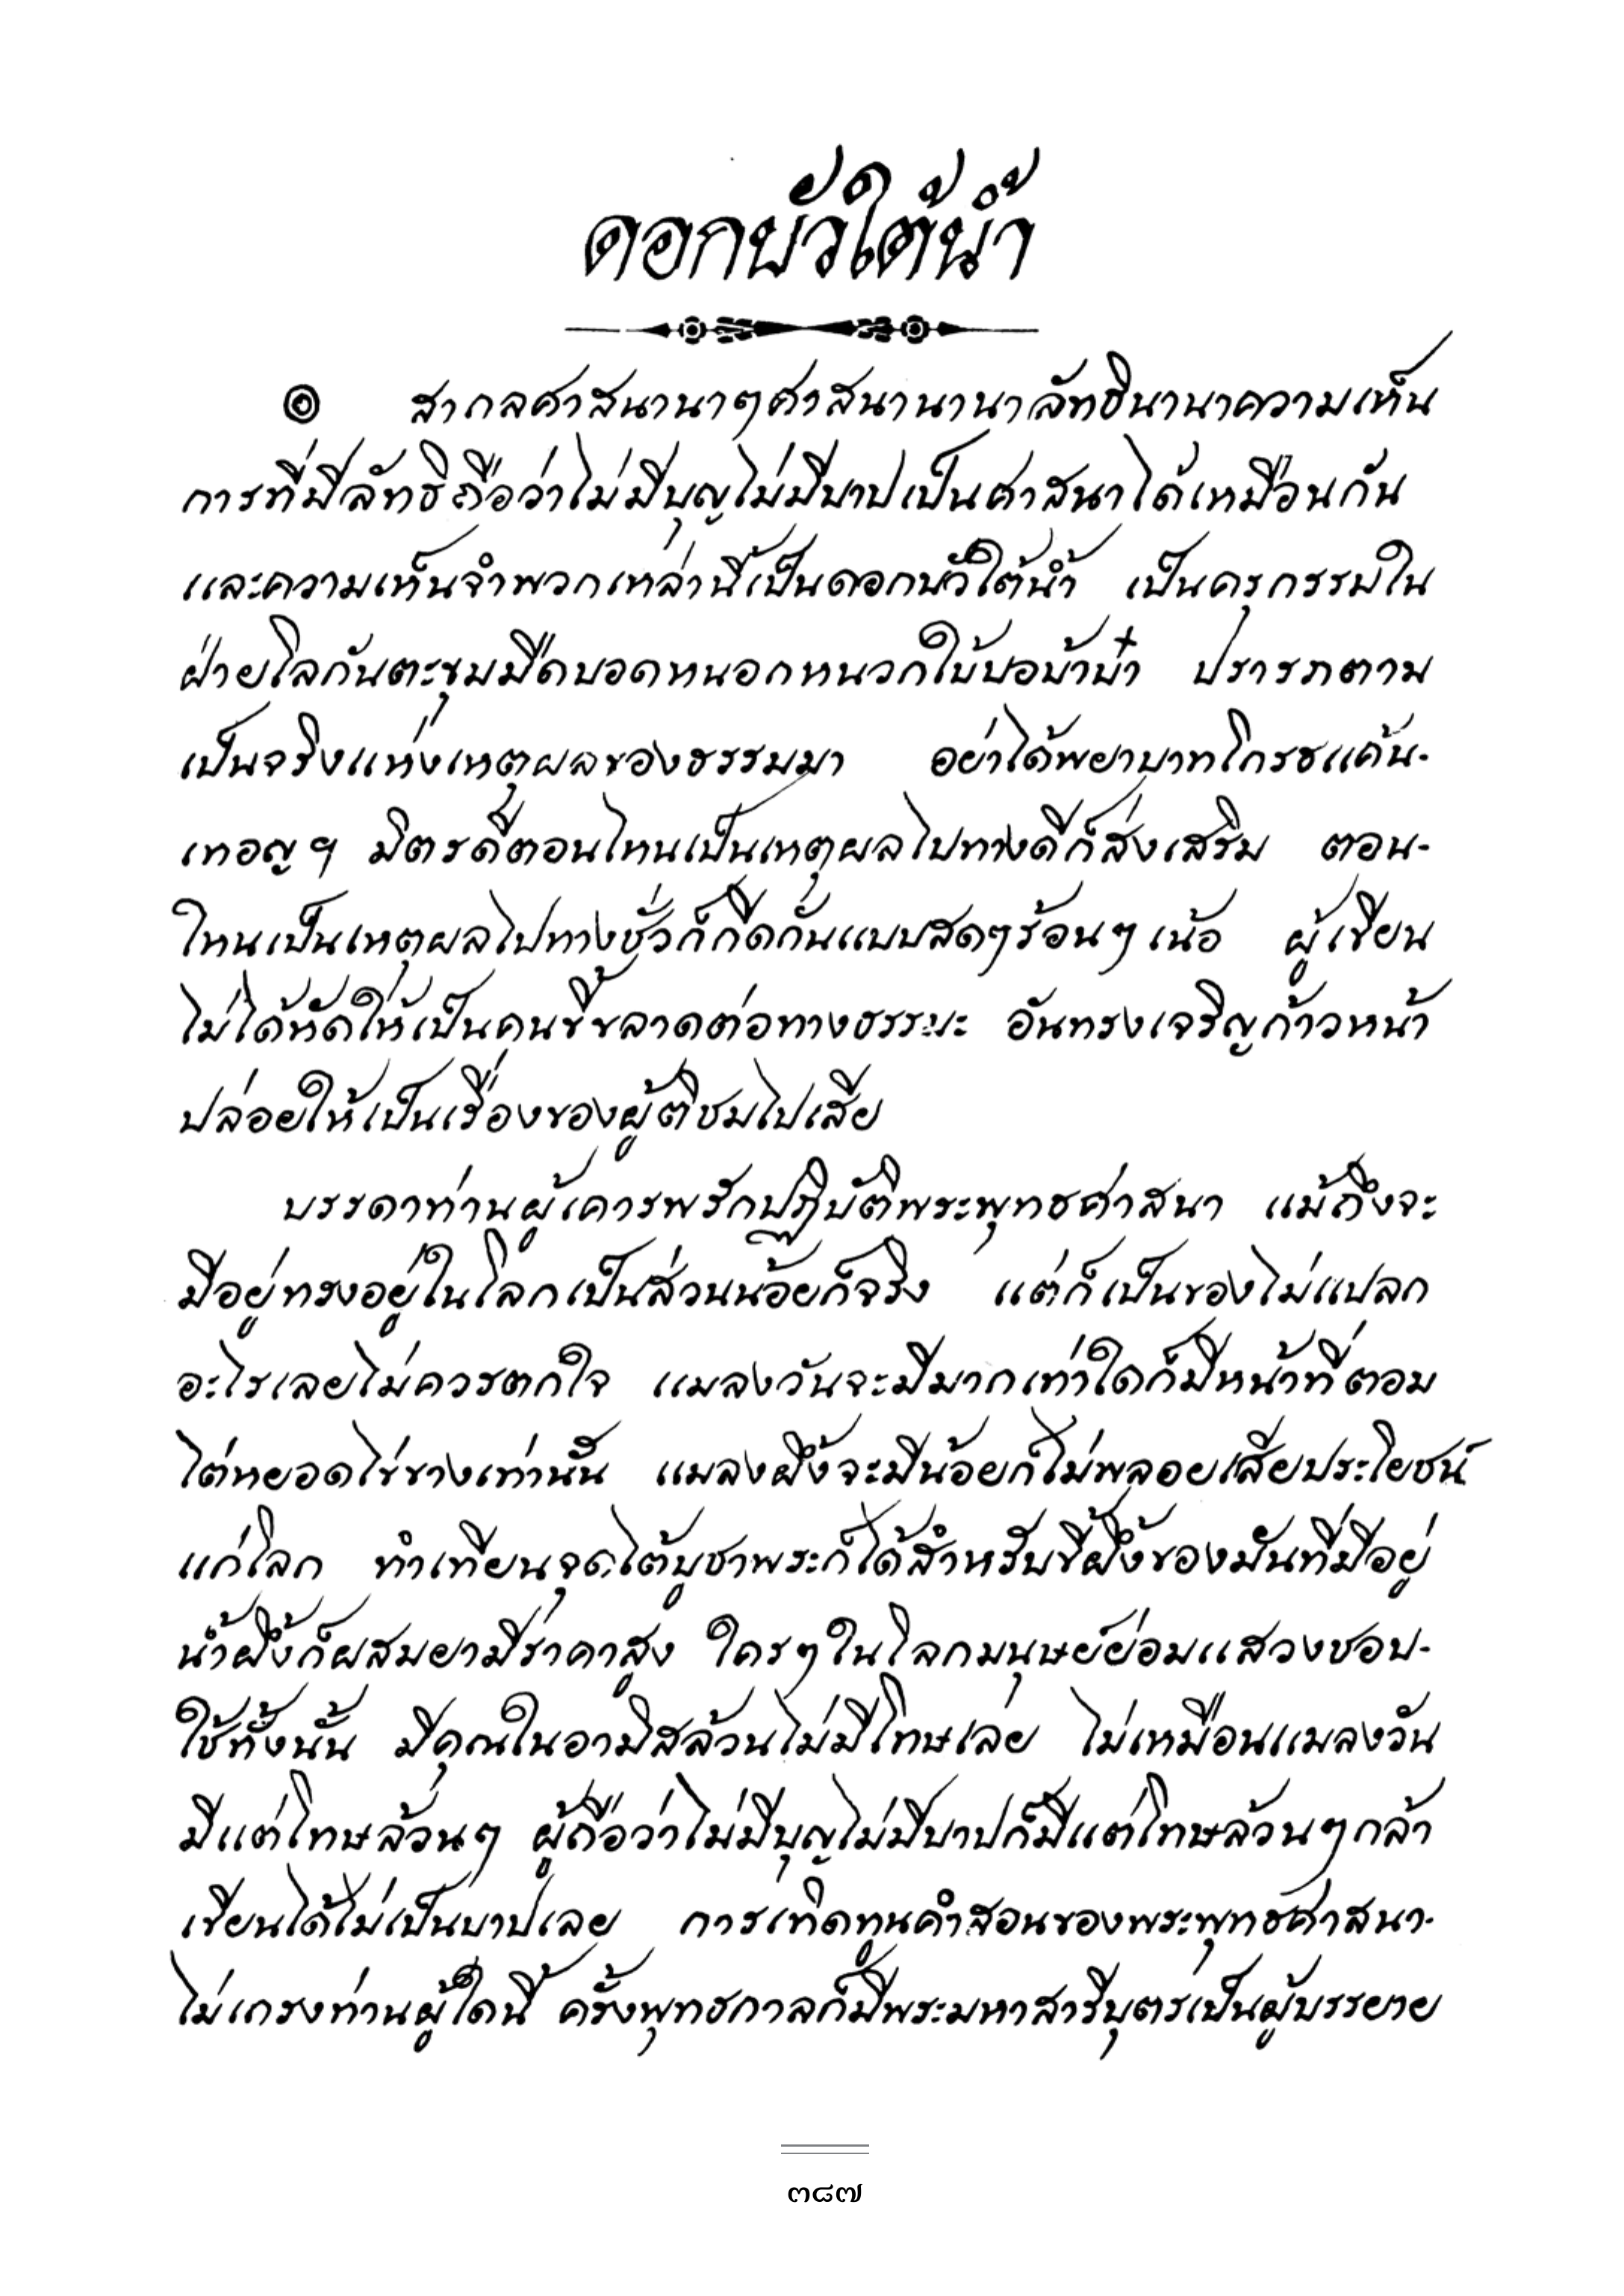 ดอกบัวใต้น้ำ
๏ สากลศาสนานาๆศาสนานานาลัทธินานาความเห็น
การที่มีลัทธิถือว่าไม่มีบุญไม่มีบาปเป็นศาสนาได้เหมือนกัน
และความเห็นจำพวกเหล่านี้เป็นดอกบัวใต้น้ำ เป็นครุกรรมใน
ฝ่ายโลกันตะขุมมืดบอดหนอกหนวกใบ้บอบ้าบ๋า ปรารภตาม
เป็นจริงแห่งเหตุผลของธรรมมา อย่าได้พยาบาทโกรธแค้น-
เทอญฯ มิตรดีตอนไหนเป็นเหตุผลไปทางดีก็ส่งเสริม ตอน-
ไหนเป็นเหตุผลไปทางชั่วก็กีดกันแบบสดๆร้อนๆเน้อ ผู้เขียน
ไม่ได้หัดให้เป็นคนขี้ขลาดต่อทางธรรมะ อันทรงเจริญก้าวหน้า
ปล่อยให้เป็นเรื่องของผู้ติชมไปเสีย
บรรดาท่านผู้เคารพรักปฏิบัติพระพุทธศาสนา แม้ถึงจะ
มีอยู่ทรงอยู่ในโลกเป็นส่วนน้อยก็จริง แต่ก็เป็นของไม่แปลก
อะไรเลยไม่ควรตกใจ แมลงวันจะมีมากเท่าใดก็มีหน้าที่ตอม
ไต่หยอดไข่ขางเท่านั้น แมลงผึ้งจะมีน้อยก็ไม่พลอยเสียประโยชน์
แก่โลก ทำเทียนจุดไต้บูชาพระก็ได้สำหรับขี้ผึ้งของมันที่มีอยู่
น้ำผึ้งก็ผสมยามีราคาสูง ใครๆในโลกมนุษย์ย่อมแสวงชอบ-
ใช้ทั้งนั้น มีคุณในอามิสล้วนไม่มีโทษเลย ไม่เหมือนแมลงวัน
มีแต่โทษล้วนๆ ผู้ถือว่าไม่มีบุญไม่มีบาปก็มีแต่โทษล้วนๆกล้า
เขียนได้ไม่เป็นบาปเลย การเทิดทูนคำสอนของพระพุทธศาสนา-
ไม่เกรงท่านผู้ใดนี้ ครั้งพุทธกาลก็มีพระมหาสารีบุตรเป็นผู้บรรยาย
๓๘๗